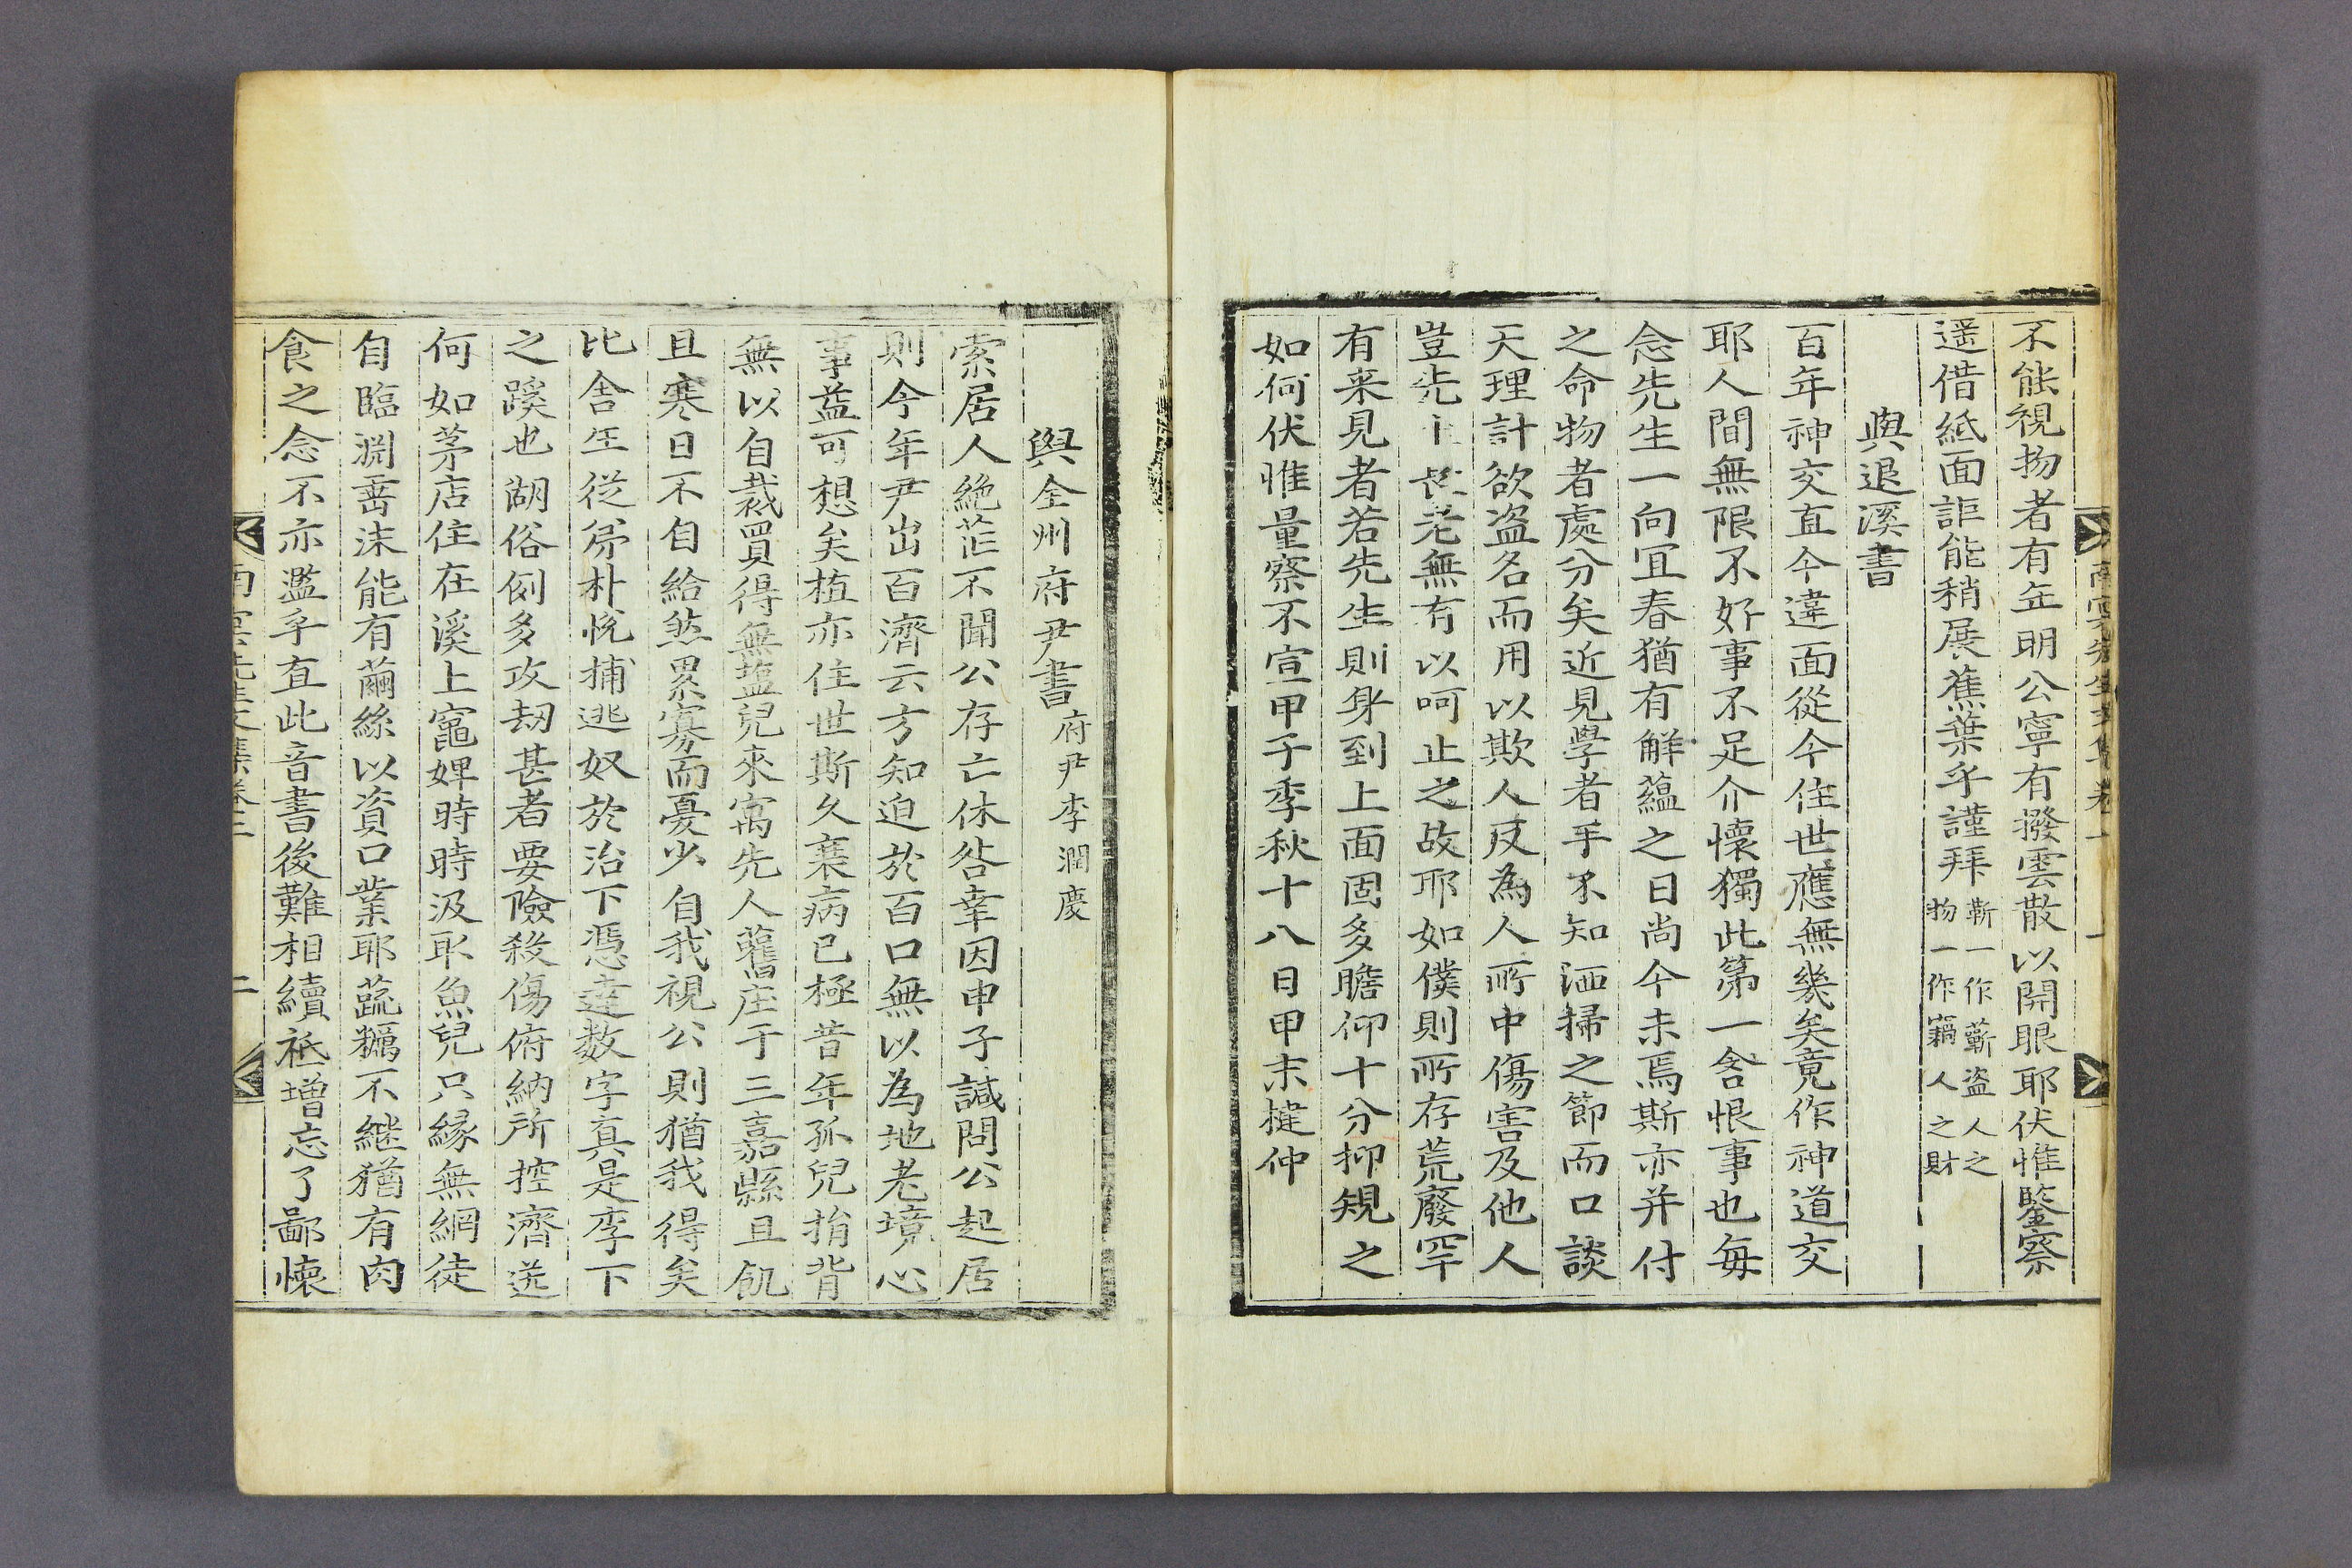 不能視物者有年明公寧有撥雲散以開眼耶伏惟鑒察
遥借紙面詎能稍展蕉葉乎謹拜
蘄一作蘄盗人之
物一作竊人之財
與退溪書
百年神交直今違面從今住世應無幾矣竟作神道交
耶人間無限不好事不足介懷獨此第一含恨事也每
念先生一向冝春猶有觧蘊之日尚今未焉斯亦并付
之命物者處分矣近見學者手不知洒掃之節而口談
天理計欲盗名而用以欺人反為人所中傷害及他人
豈先生長老無有以呵止之故耶如僕則所存荒廢罕
有来見者若先生則身到上面固多瞻仰十分抑規之
如何伏惟量察不宣甲子季秋十八日甲末揵仲
與全州府尹書
府尹李潤慶
索居人絶茫不聞公存亡休咎幸因申子諴問公起居
則今年尹出百濟云方知迫於百口無以為地老境心
事益可想矣植亦住世斯久衰病已極昔年孤兒捐背
無以自裁買得無塩兒來寓先人舊庄于三嘉縣且飢
且寒日不自給然累寡而憂少自我視公則猶我得矣
比舍生從弟朴悅捕逃奴於治下憑達数字真是李下
之蹊也湖俗例多攻刼甚者要險殺傷俯納所控濟送
何如茅店住在溪上竈婢時時汲取魚兒只緣無網徒
自臨淵蚕沫能有繭絲以資口業耶蔬糲不継猶有肉
食之念不亦濫乎直此音書後難相續秪增忘了鄙懷
南冥先生文集卷二
二